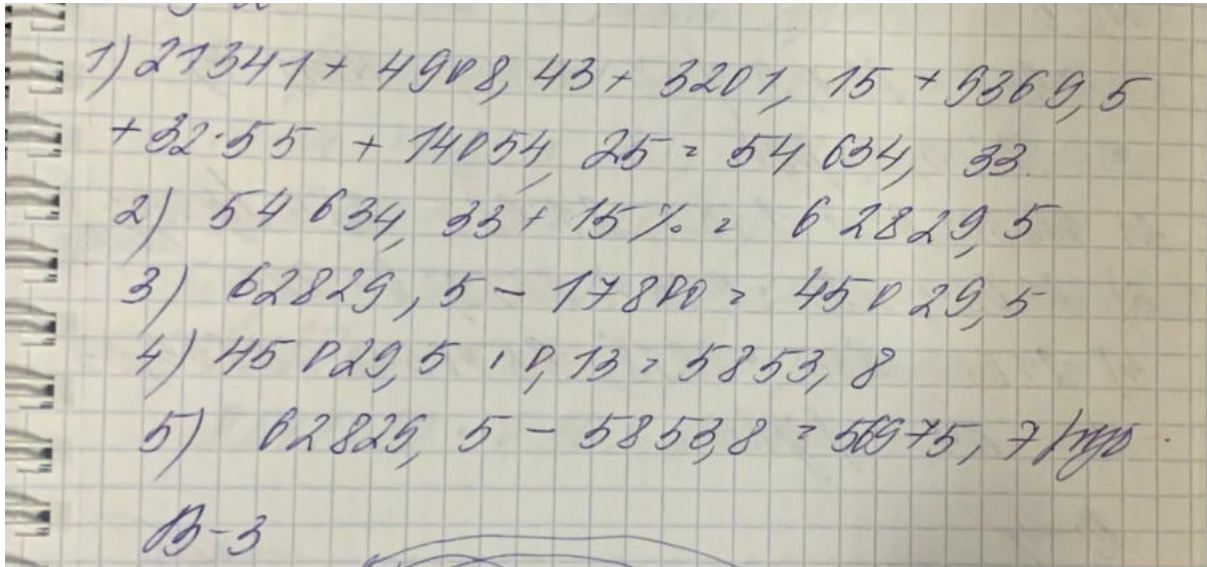 1) 21341 + 4908,43 + 3201,15 + 9369,5
+ 32·55 + 14054,25 = 54 634,33.
2) 54 634,33 + 15% = 62829,5
3) 62829,5 - 17800 = 45029,5
4) 45029,5 · 0,13 = 5853,8
5) 62829,5 - 5853,8 = 56975,7 руб.
В-3